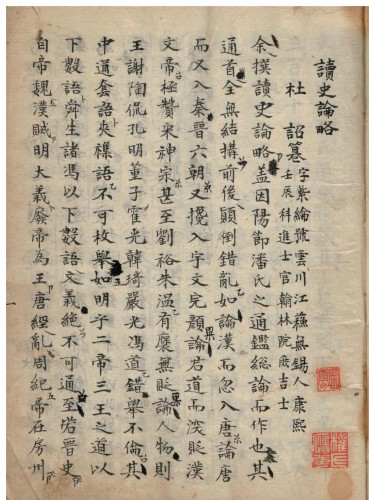 讀史論略
杜詔篹 字紫綸號雲川江蘇無錫人康熙
壬辰科進士官翰林院庶吉士
余撰讀史論略盖因陽節潘氏之通鑑總論而作也其
通首全無結搆前後顚倒錯亂如論漢而忽入唐論唐
而又入秦晋六朝又攙入宇文完顔論君道而深貶漢
文帝極贊宋神宗甚至劉裕朱温有褒無貶論人物則
王謝陶侃孔明董子霍光韓琦嚴光馮道錯舉不倫其
中通套語夾襍語不可枚舉如明于二帝三王之道以
下數語舜生諸馮以下數語文義絶不可通至若晋史
自帝魏漢賊明大義廢帝為王唐經亂周紀帝在房州